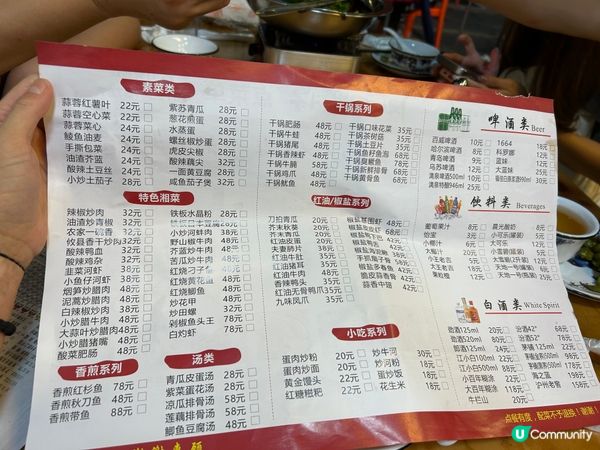 素菜类
蒜蓉红薯叶 22元
蒜蓉空心菜 22元
蒜蓉菜心 24元
鲮鱼油麦 24元
手撕包菜 24元
油渣芥蓝 24元
酸辣土豆丝 24元
小炒土豆子 28元
紫苏青瓜 28元
葱花煎蛋 28元
水蒸蛋 28元
螺丝椒炒蛋 28元
虎皮尖椒 28元
酸辣藕尖 32元
一面黄豆腐 32元
咸鱼茄子煲 32元
特色湘菜
辣椒炒肉 32元
油渣炒青椒 32元
农家一碗香 32元
攸县香干炒肉 32元
酸辣鸭血 32元
酸辣鸡杂 32元
韭菜河虾 38元
小鱼仔河虾 38元
烟笋炒腊肉 38元
泥蒿炒腊肉 38元
白辣椒炒肉 38元
小炒腊牛肉 38元
大蒜叶炒腊肉 48元
小炒腊猪嘴 48元
酸菜肥肠 48元
铁板水晶粉 28元
小炒河鲜 38元
野山椒牛肉 48元
芥蓝炒牛肉 48元
苦瓜炒牛肉 48元
红烧黄花鱼 48元
红烧鲫鱼 48元
炒花甲 48元
炒田螺 32元
剁椒鱼头王 78元
白灼虾 78元
香煎系列
香煎红杉鱼 78元
香煎秋刀鱼 48元
香煎带鱼 88元
汤类
青瓜皮蛋汤 28元
紫菜蛋花汤 28元
凉瓜排骨汤 58元
莲藕排骨汤 58元
鲫鱼豆腐汤 48元
干锅系列
干锅肥肠 48元
干锅牛蛙 48元
干锅猪尾 48元
干锅香辣虾 48元
干锅牛腩 58元
干锅鸡爪 48元
干锅鱿鱼 48元
干锅口味花菜 35元
干锅茶树菇 35元
干锅土豆片 35元
干锅鱼籽鱼泡 68元
干锅臭鳜鱼 75元
干锅新鲜排骨 68元
干锅黄骨鱼 68元
红油/椒盐系列
刀拍青瓜 20元
芥末秋葵 20元
芥末青瓜 20元
红油皮蛋 20元
夫妻肺片 38元
红油牛肚 38元
红油猪耳 38元
红油牛肉 48元
香辣鸭头
红油无骨鸭爪 35元
九味凤爪 35元
椒盐基围虾 68元
椒盐皮皮虾
手抓扇子骨 58元
椒盐多春鱼
脆皮蒜香骨
蒜香中翅
小吃系列
蛋肉炒粉 20元
蛋肉炒面 20元
黄金馒头 22元
红糖糍粑 22元
炒牛河 30元
炒河粉 18元
蛋炒饭 18元
花生米 18元
啤酒类 Beer
百威啤酒 10元
哈尔滨啤酒 8元
青岛啤酒 12元
乌苏啤酒 12元
1664 18元
科罗娜 15元
蓝妹 12元
大蓝妹 25元
饮料类 Beverages
葡萄果汁 8元
怡宝 3元
小椰汁 6元
大椰汁 20元
小王老吉 5元
大王老吉 12元
果粒橙
晨光酸奶 8元
小可乐(罐装) 5元
大可乐 12元
小雪碧(罐装) 5元
大雪碧(瓶装) 12元
白酒类 White Spirit
劲酒125ml 20元
劲酒520ml 80元
江小白100ml 22元
小百年糊涂 22元
大百年糊涂
牛栏山 20元
汾酒42° 68元
汾酒52° 78元
海之蓝 198元
泸州老窖 158元
点餐有度，配菜不予退换！谢谢！
U Community